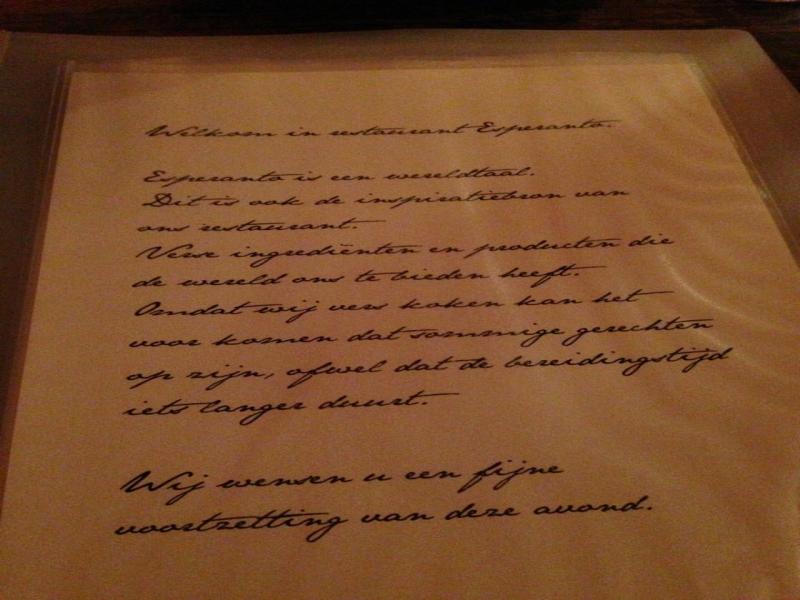 Welkom in restaurant Esperanto.
Esperanto is een wereldtaal.
Dit is ook de inspiratiebron van
ons restaurant.
Verse ingrediënten en producten die
de wereld ons te bieden heeft.
Omdat wij vers koken kan het
voor komen dat sommige gerechten
op zijn, ofwel dat de bereidingstijd
iets langer duurt.
Wij wensen u een fijne
voortzetting van deze avond.